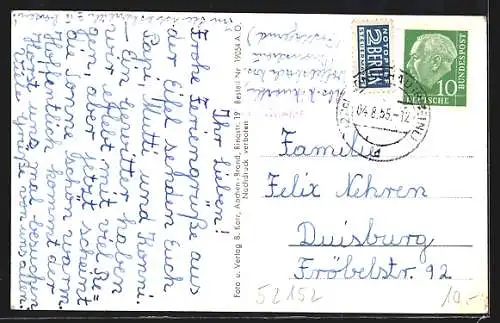 Ihr Lieben!
Frohe Feriengrüße aus
der Eifel senden Euch
Papi, Mutti und Konni.
Ein Gewitter haben
wir erlebt mit viel Re-
gen, aber jetzt scheint
die Sonne schon warm.
Hoffentlich kommt der
Horst uns mal besuchen
Viele Grüße von uns allen.
Foto u. Verlag B. Korr, Aachen-Brand, Ringstr. 19 Bestell Nr. 19034 A.O.
Nachdruck verboten
NOTOPFER
2 BERLIN
STEUERMARKE
DEUTSCHE
BUNDESPOST
10
04.8.55.-12
Familie
Felix Nehren
Duisburg
Fröbelstr. 92
52152
10.-